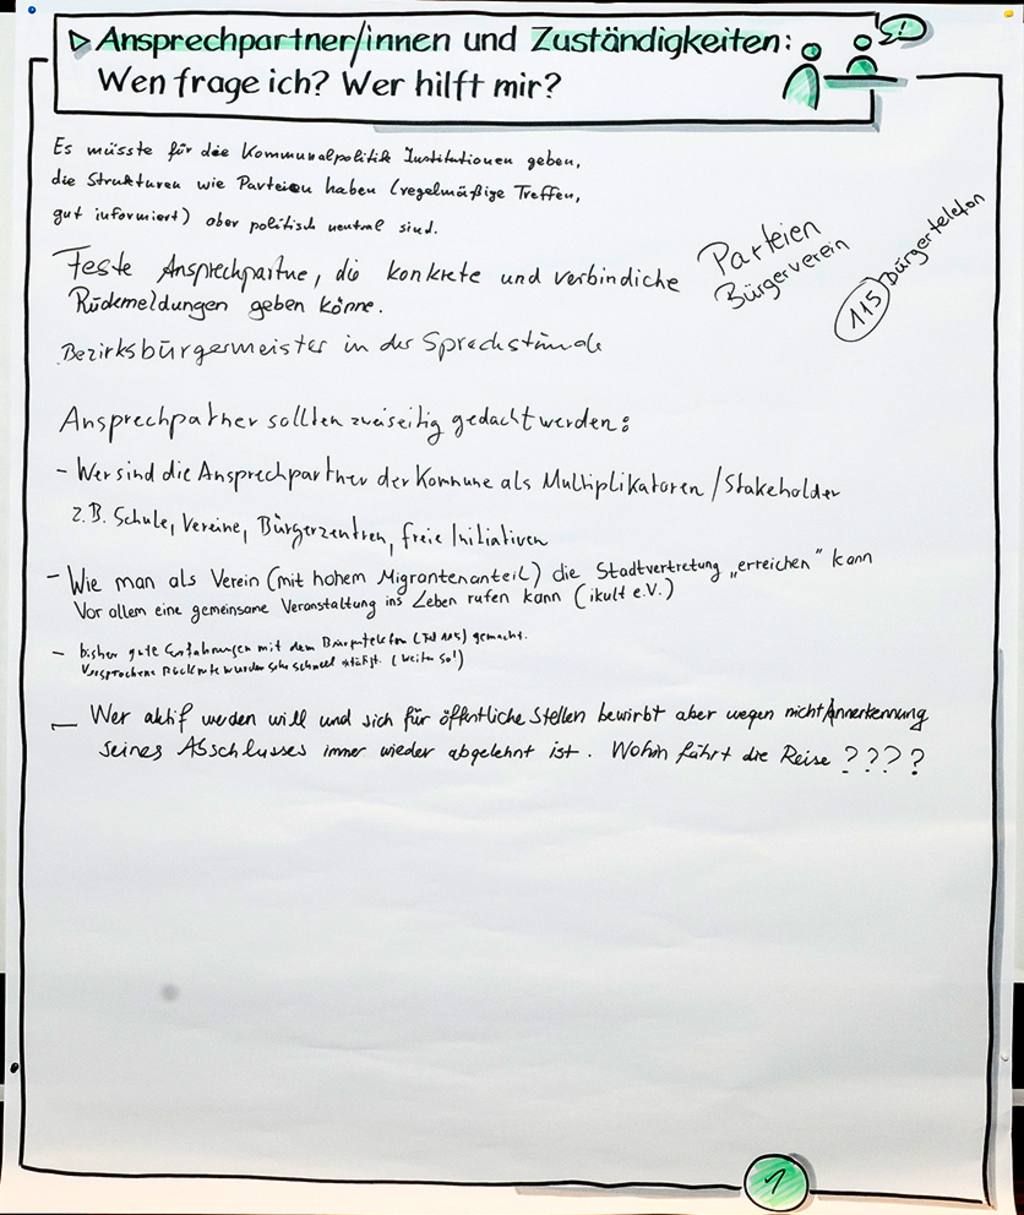 Ansprechpartner/innen und Zuständigkeiten:
Wen frage ich? Wer hilft mir?
!
Es müsste für die Kommunalpolitik Institutionen geben,
die Strukturen wie Parteien haben (regelmäßige Treffen,
gut informiert) aber politisch neutral sind.
Feste Ansprechpartne, die konkrete und verbindliche
Rückmeldungen geben könne.
Parteien
Bürgerverein
115 Bürgertelefon
Bezirksbürgermeister in der Sprechstunde
Ansprechpartner sollten zweiseitig gedacht werden:
- Wer sind die Ansprechpartner der Kommune als Multiplikatoren / Stakeholder
z.B. Schule, Vereine, Bürgerzentren, freie Initiativen
- Wie man als Verein (mit hohem Migrantenanteil) die Stadtvertretung „erreichen" kann
Vor allem eine gemeinsame Veranstaltung ins Leben rufen kann (ikult e.V.)
- bisher gute Erfahrungen mit dem Bürgertelefon (Tel 115) gemacht.
Versprochene Rückrufe wurden sehr schnell (weiter so!)
- Wer aktif werden will und sich für öffentliche Stellen bewirbt aber wegen nicht Annerkennung
seines Abschlusses immer wieder abgelehnt ist. Wohin führt die Reise ????
1